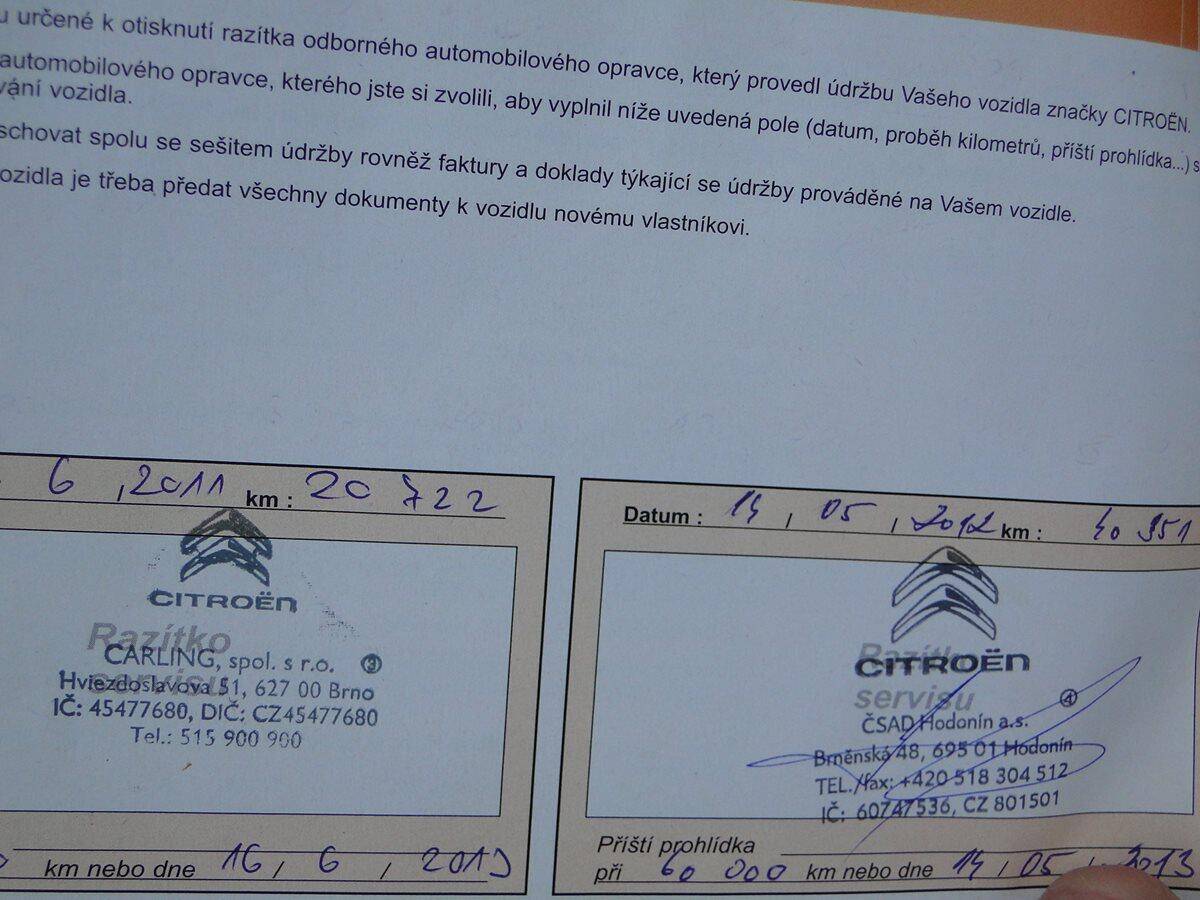 u určené k otisknutí razítka odborného automobilového opravce, který provedl údržbu Vašeho vozidla značky CITROËN.
automobilového opravce, kterého jste si zvolili, aby vyplnil níže uvedená pole (datum, proběh kilometrů, příští prohlídka...) s
vání vozidla.
schovat spolu se sešitem údržby rovněž faktury a doklady týkající se údržby prováděné na Vašem vozidle.
ozidla je třeba předat všechny dokumenty k vozidlu novému vlastníkovi.
6 , 2011 km : 20 722
CITROËN
Razítko
servisu
CARLING, spol. s r.o. ③
Hviezdoslavova 51, 627 00 Brno
IČ: 45477680, DIČ: CZ45477680
Tel.: 515 900 900
km nebo dne 16 / 6 / 2013
Datum : 14 / 05 / 2012 km : 40 951
CITROËN
Razítko
servisu
④
ČSAD Hodonín a.s.
Brněnská 48, 695 01 Hodonín
TEL./fax: +420 518 304 512
IČ: 60747536, CZ 801501
Příští prohlídka
při 60 000 km nebo dne 14 / 05 / 2013